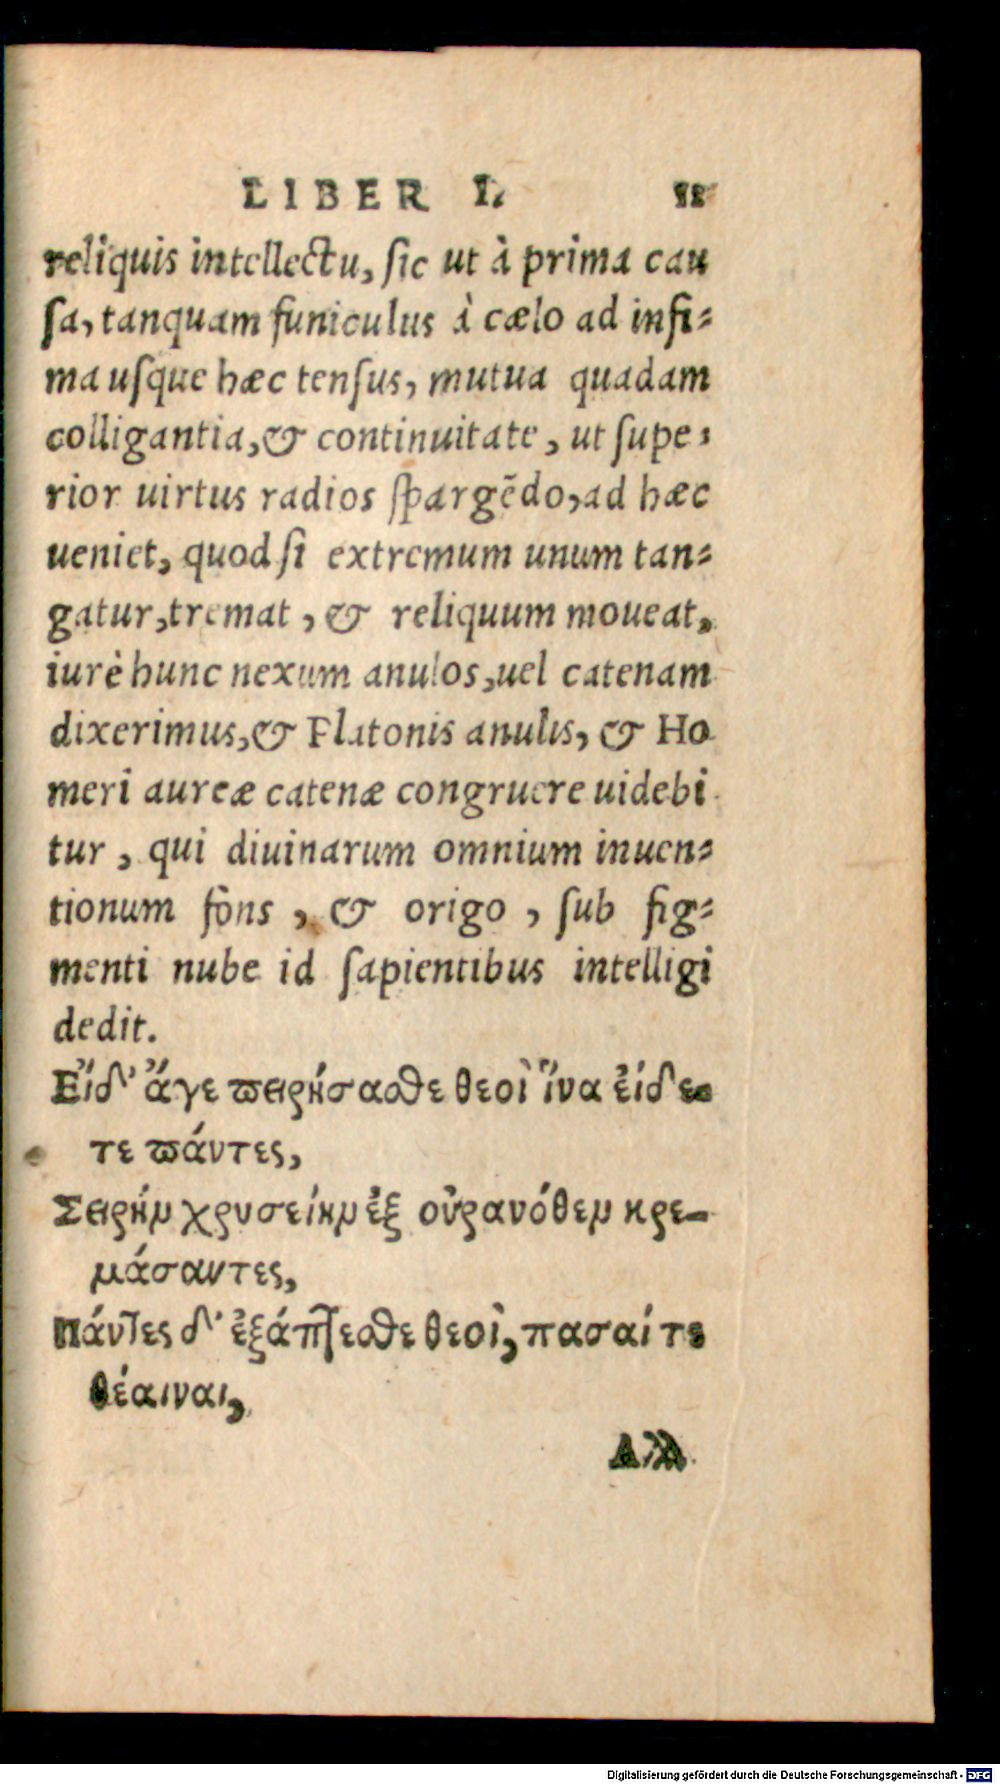 LIBER I. 11
reliquis intellectu, sic ut à prima cau
sa, tanquam funiculus à cælo ad infi-
ma usque hæc tensus, mutua quadam
colligantia, & continuitate, ut supe-
rior uirtus radios spargẽdo, ad hæc
ueniet, quod si extremum unum tan-
gatur, tremat, & reliquum moueat,
iurè hunc nexum anulos, uel catenam
dixerimus, & Platonis anulis, & Ho
meri aureæ catenæ congruere uidebi
tur, qui diuinarum omnium inuen-
tionum fõns, & origo, sub fig-
menti nube id sapientibus intelligi
dedit.
Εἴδ' ἄγε πειρήσασθε θεοὶ ἵνα εἴδε-
τε πάντες,
Σειρὴν χρυσείην ἐξ οὐρανόθεν κρε-
μάσαντες,
Πάντες δ' ἐξάπτεσθε θεοὶ, πασαί τε
θέαιναι,
Αλλ
Digitalisierung gefördert durch die Deutsche Forschungsgemeinschaft - DFG